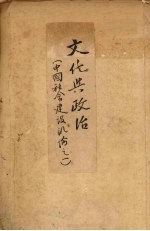 文化與政治
(中國社會建設汎論之一)